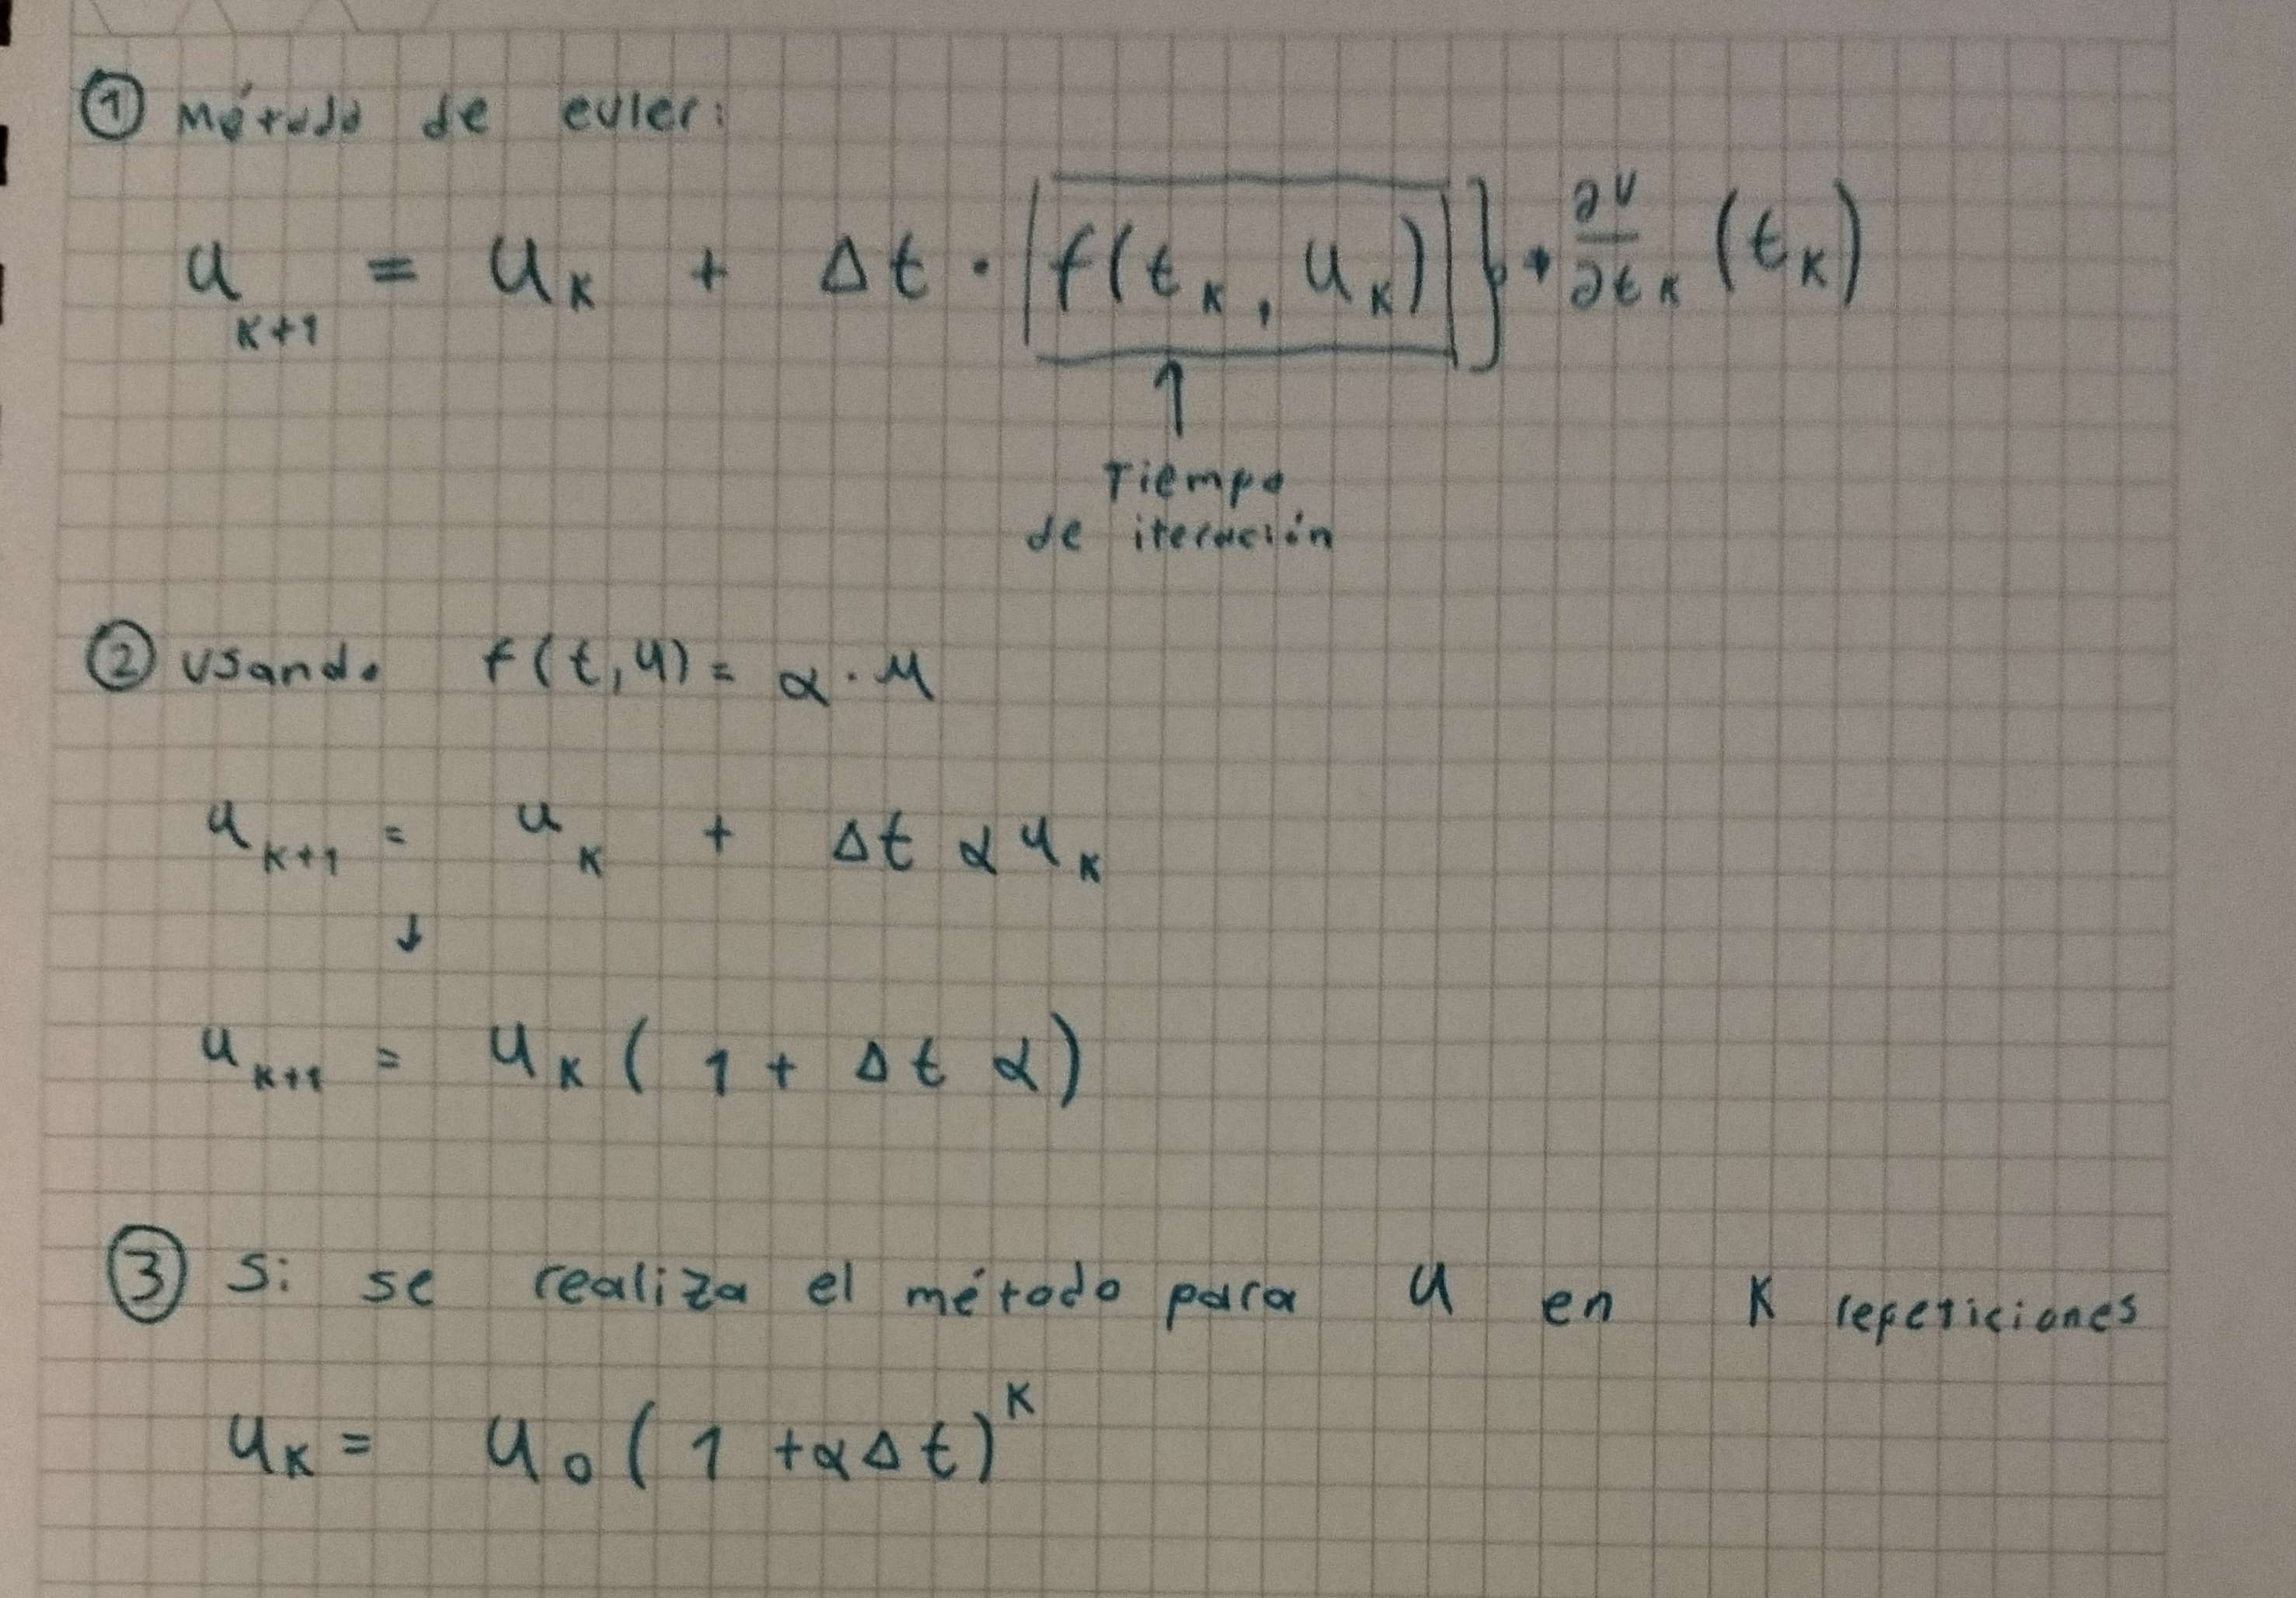 ① Método de euler:
u_{K+1} = u_K + Δt · [f(t_K, u_K)] } → ∂u/∂t_K (t_K)
↑
Tiempo
de iteración
② usando f(t,u) = α · u
u_{K+1} = u_K + Δt α u_K
↓
u_{K+1} = u_K ( 1 + Δt α)
③ Si se realiza el método para u en K repeticiones
u_K = u_0 ( 1 + αΔt)^K